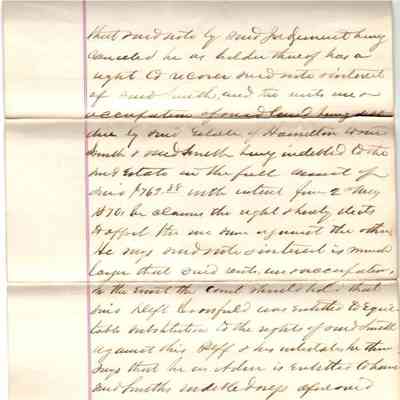 that said note by said Judgement being
canceled he as holder thereof has a
right to recover said note & interest
of said Smith, and the rents use or
occupation of said land being
due by his Estate of Hamilton
Smith & said Smith being indebted to the
said Estate in the full amount of
this $762.38 with interest from 2 May
1876 he claims the right & hereby elects
to offset the one sum against the other
He says said note & interest is much
larger that said rents, use or occupation,
In the event the Court should hold that
this Deft Broomfield was entitled to Equi
table substitution to the rights of said Smith
against this Plff & his intestate he then
says that he as Admr is Entitled to have
said Smiths indebtedness aforesaid